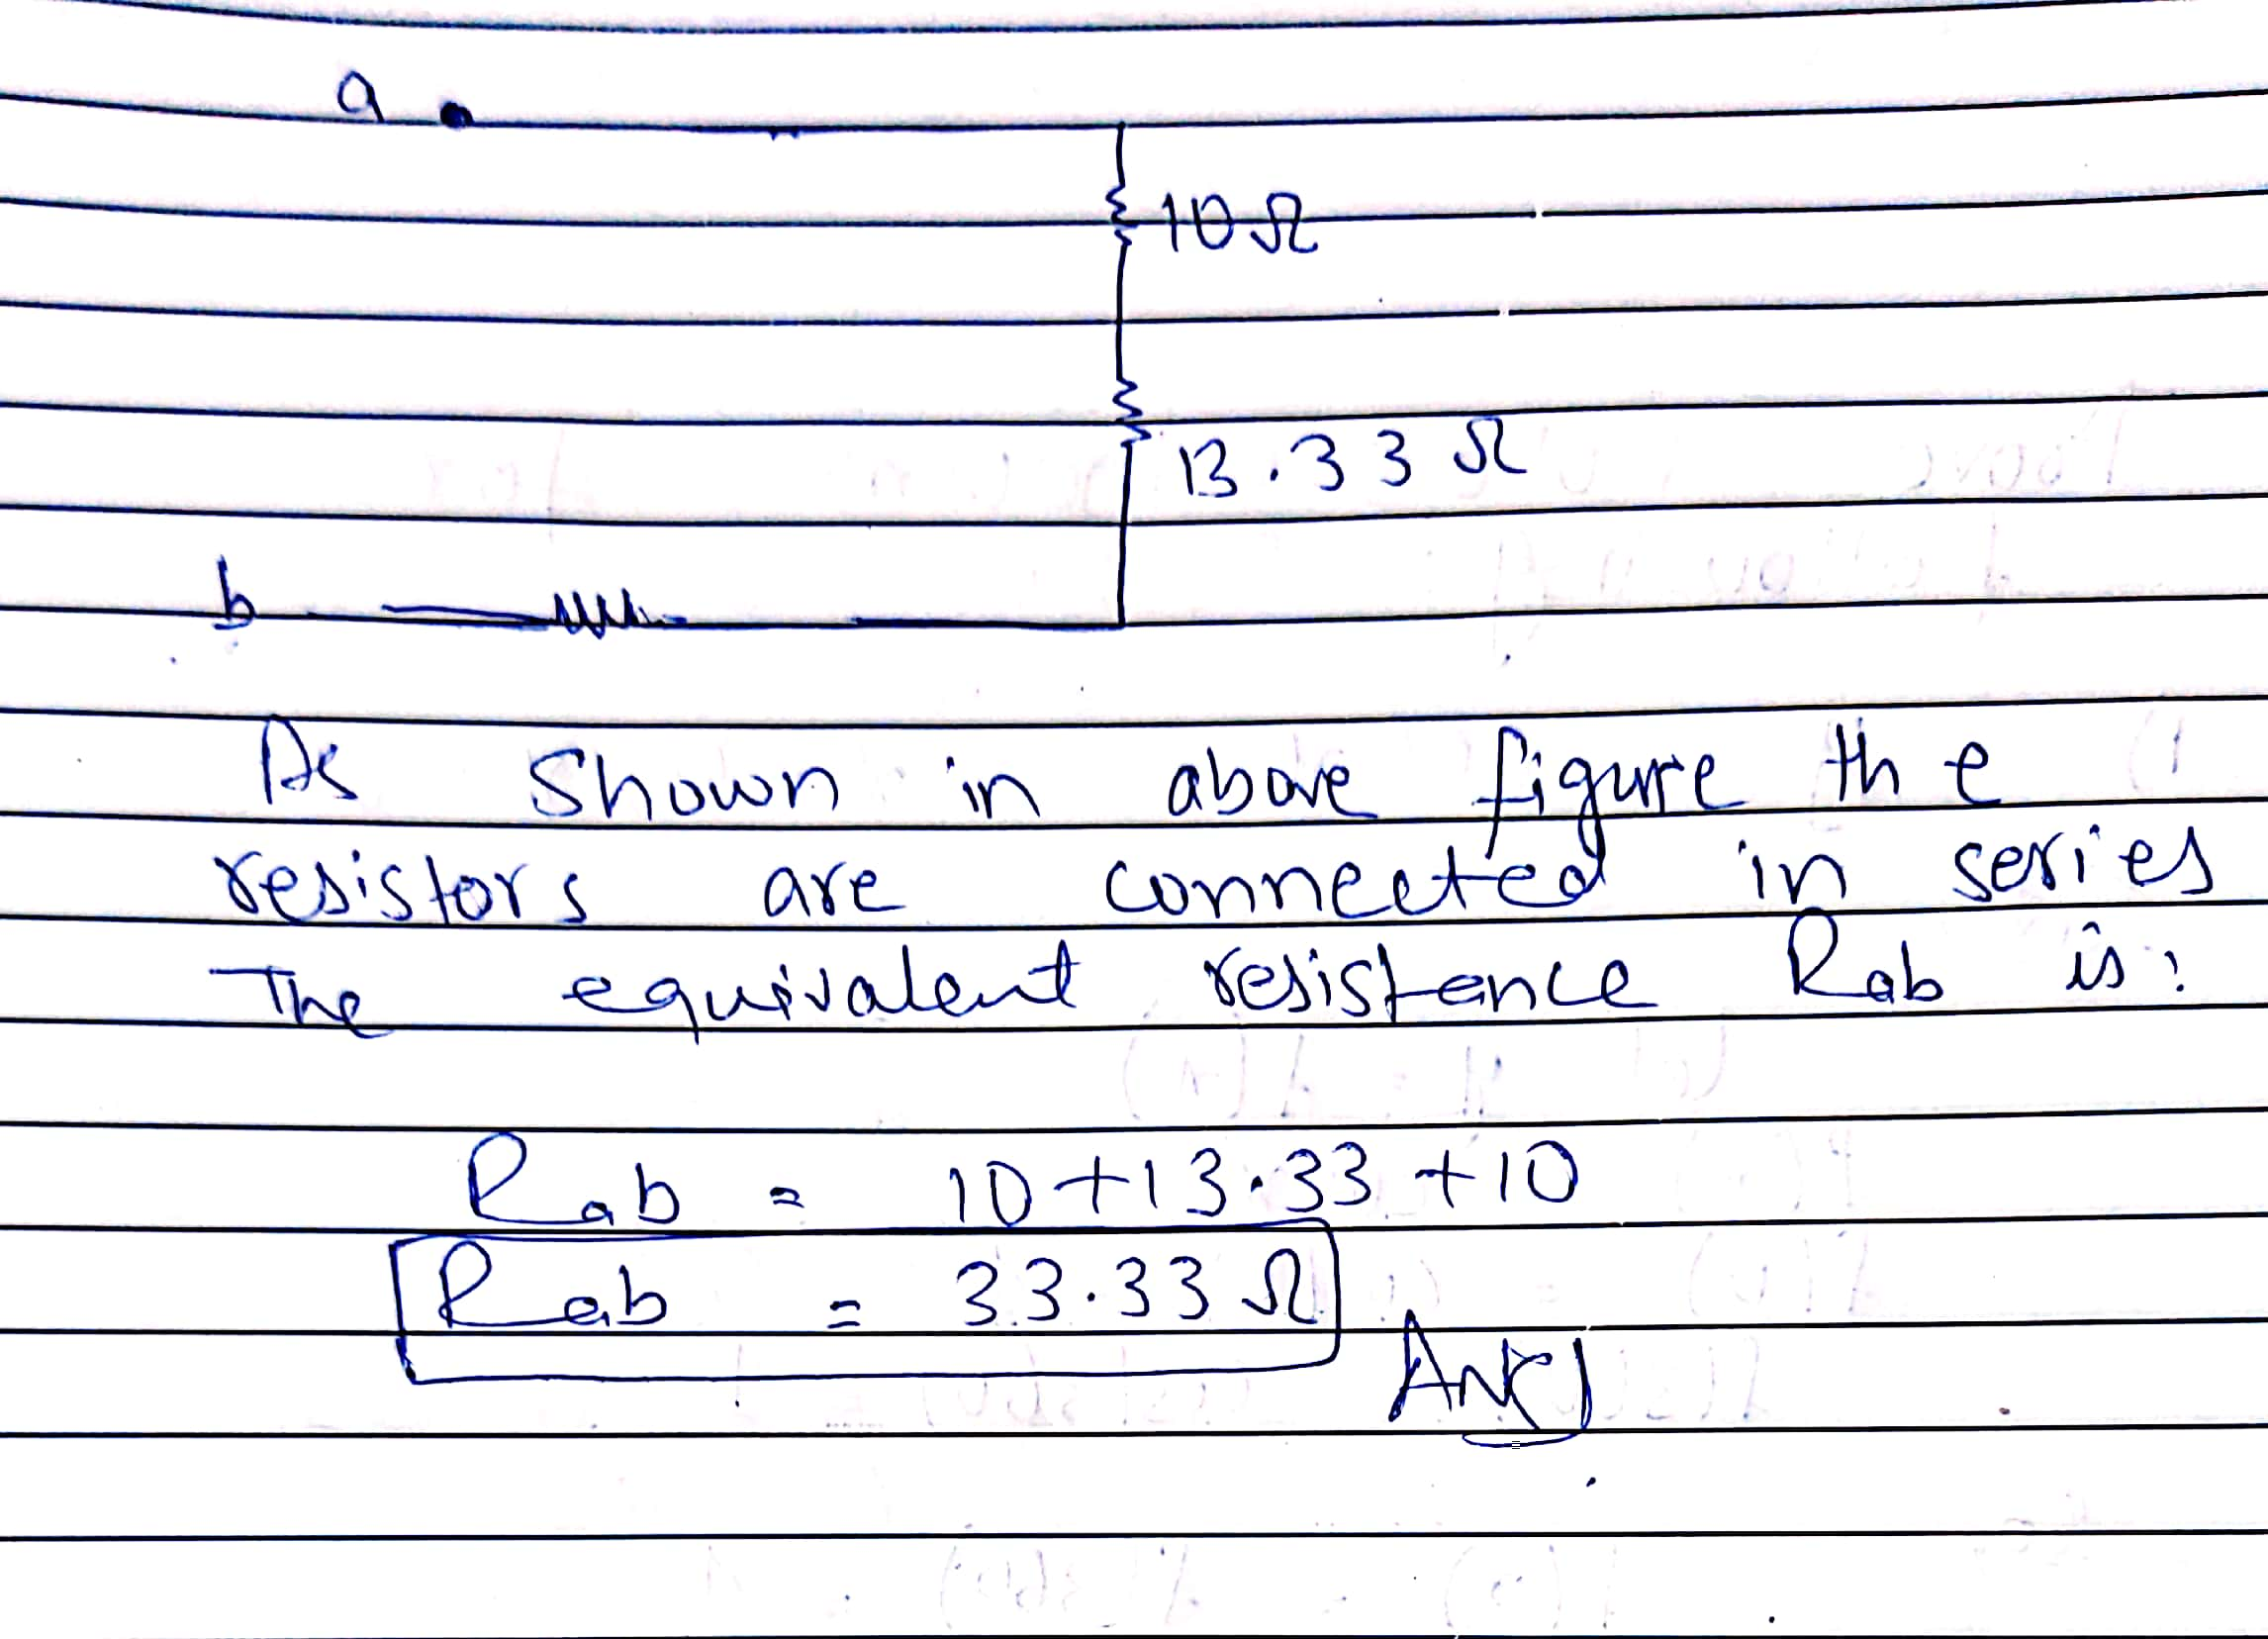 a
10 Ω
13.33 Ω
b
As Shown in above figure the
resistors are connected in series
The equivalent resistence Rab is:
Rab = 10+13.33+10
Rab = 33.33 Ω
Ans